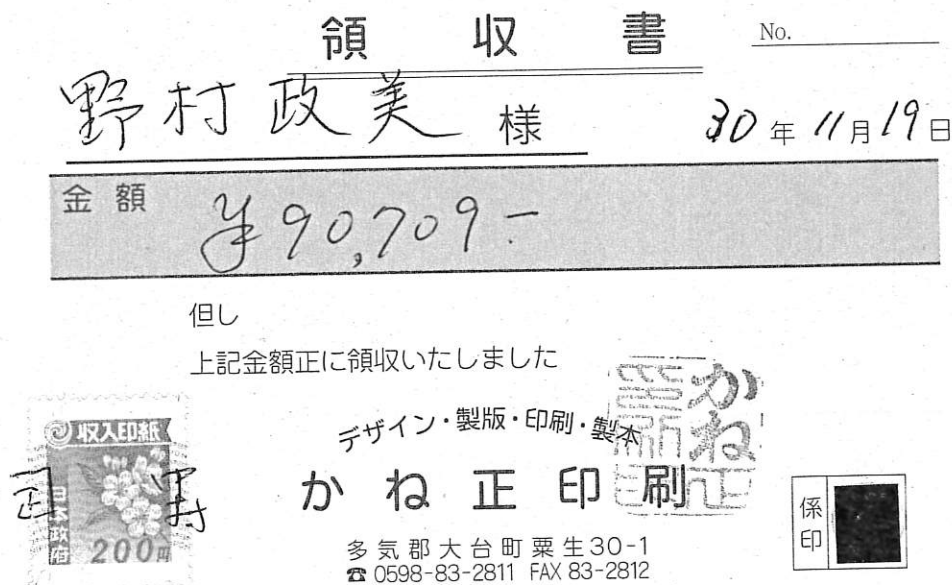 領 収 書
No.
野村政美 様
30年11月19日
金額 ¥90,709.-
但し
上記金額正に領収いたしました
収入印紙
日本政府
200円
デザイン・製版・印刷・製本
かね正印刷
かね正印刷
多気郡大台町粟生30-1
☎ 0598-83-2811 FAX 83-2812
係印